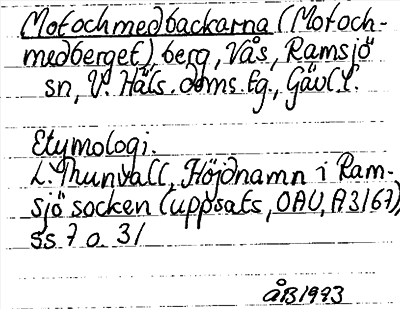 Motochmedbackarna (Motoch-
medberget), berg, Vås, Ramsjö
sn, V. Häls. doms. tg., Gävl. l.
Etymologi.
L. Thunvall, Höjdnamn i Ram-
sjö socken (uppsats, OAU, A3167),
ss 7 o. 31
ÅB 1993